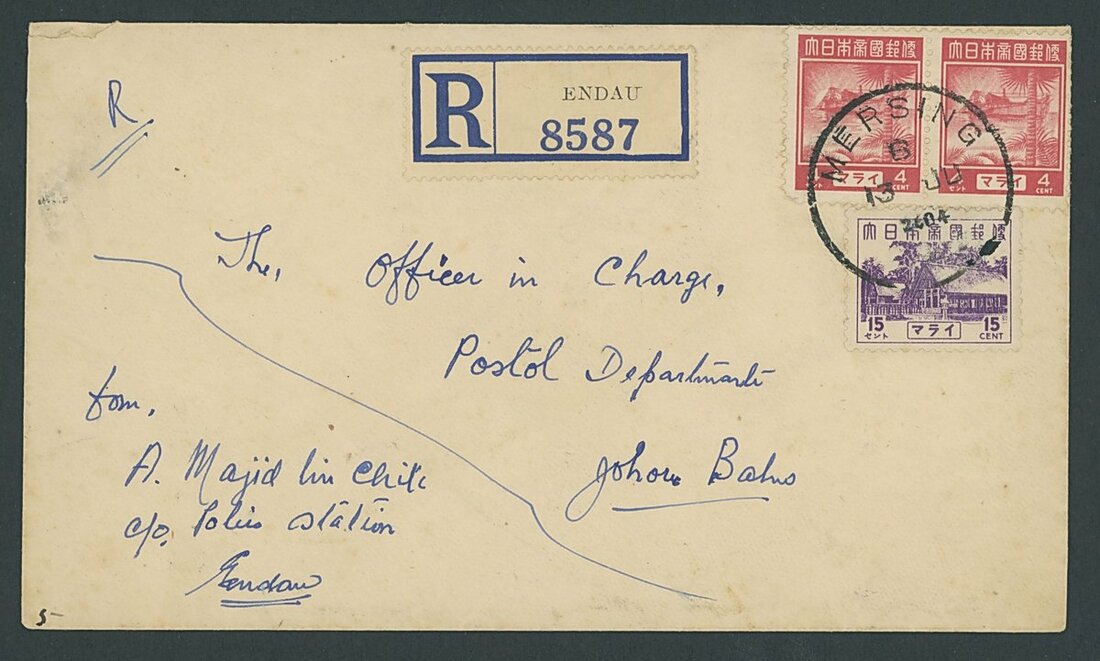 R
R ENDAU
8587
大日本帝國郵便
セント マライ 4 CENT
大日本帝國郵便
セント マライ 4 CENT
MERSING
B
13 JU
2604
大日本帝國郵便
15 マライ 15
セント CENT
The,
Officer in Charge,
Postal Department
Johore Bahru
from,
A. Majid bin Chik
c/o. Police Station
Endau
5-